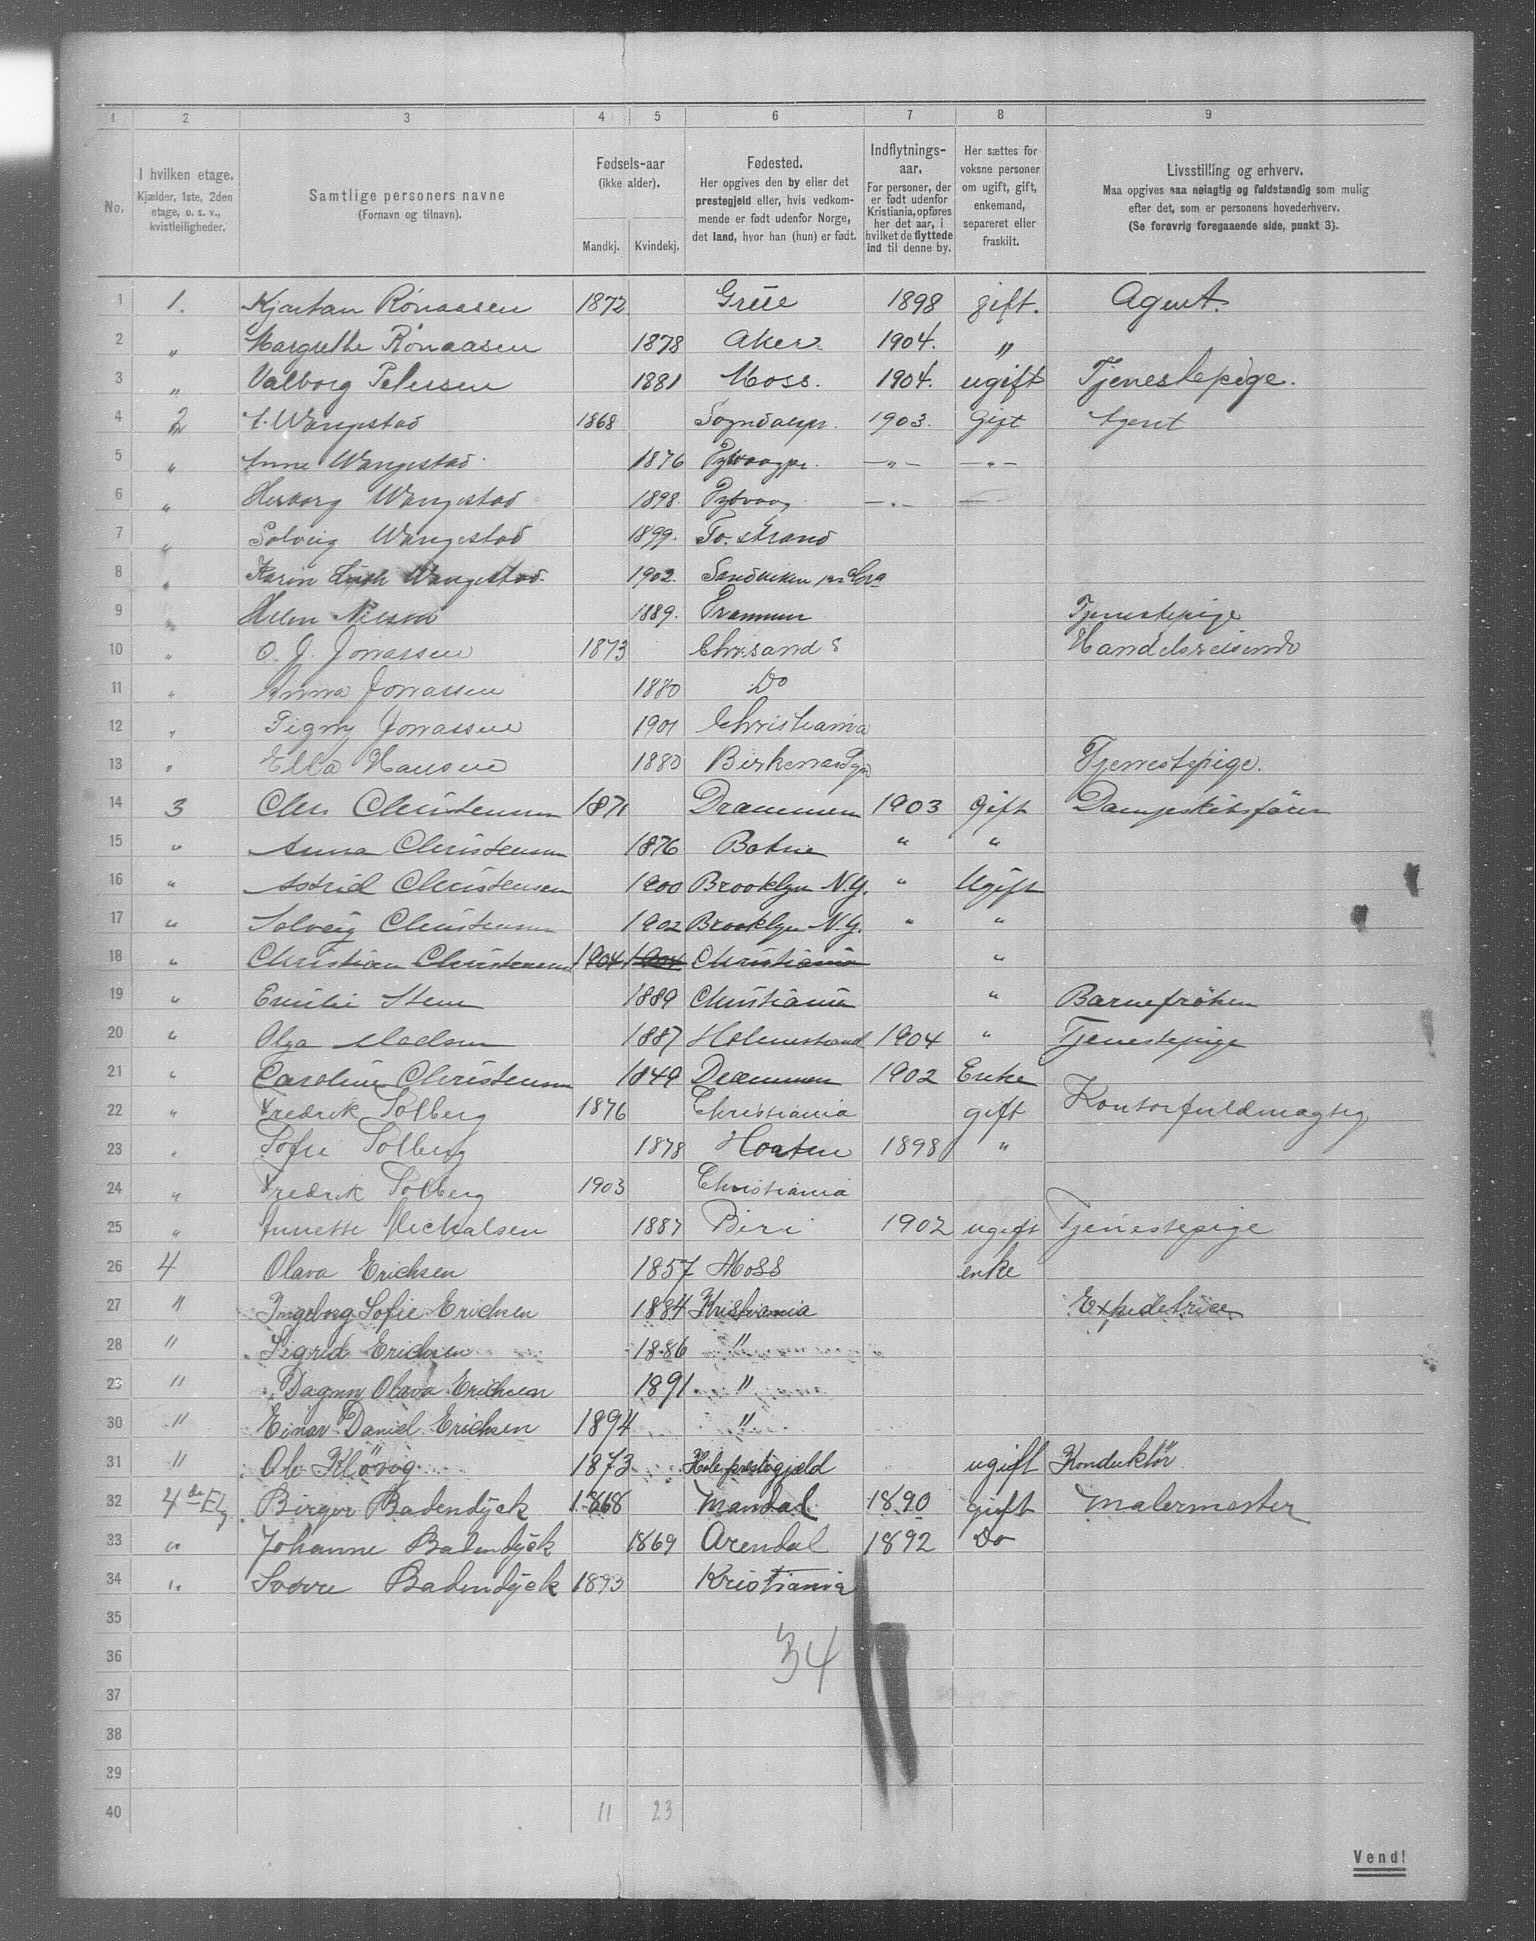 1 2 3 4 5 6 7 8 9
No.
I hvilken etage.
Kjælder, 1ste, 2den
etage, o. s. v.,
kvistleiligheder.
Samtlige personers navne
(Fornavn og tilnavn).
Fødsels-aar
(ikke alder).
Mandkj. Kvindekj.
Fødested.
Her opgives den by eller det
prestegjeld eller, hvis vedkom-
mende er født udenfor Norge,
det land, hvor han (hun) er født.
Indflytnings-
aar.
For personer, der
er født udenfor
Kristiania, opføres
her det aar, i
hvilket de flyttede
ind til denne by.
Her sættes for
voksne personer
om ugift, gift,
enkemand,
separeret eller
fraskilt.
Livsstilling og erhverv.
Maa opgives saa nøiagtig og fuldstændig som mulig
efter det, som er personens hovederhverv.
(Se forøvrig foregaaende side, punkt 3).
1 1. Kjartan Rönaasen 1872 Grue 1898 gift. Agent.
2 " Margrethe Rönaasen 1878 Aker 1904. "
3 " Valborg Petersen 1881 Moss. 1904. ugift Tjenestepige.
4 2 Wangestad 1868 Sogndalspr. 1903. Gift Agent
5 " Anne Wangestad 1876 —"— —"—
6 " Herborg Wangestad 1898. —"—
7 " Solveig Wangestad 1899. To. strand
8 " Karin Wangestad. 1902. Sandviken
9 " Helen Nilsen 1889. Drammen Tjenestepige
10 " O. J. Jonassen 1873 Chr.sand S Handelsreisende
11 " Anna Jonassen 1880 Do
12 " Signy Jonassen 1901 Christiania
13 " Ella Hansen 1880 Birkenæs Tjenestepige.
14 3 Chr Christensen 1871 Drammen 1903 gift Dampskibsförer
15 " Anna Christensen 1876 Botne " "
16 " Astrid Christensen 1900 Brooklyn N.Y. " Ugift
17 " Solveig Christensen 1902 Brooklyn N.Y. " "
18 " Christian Christensen 1904 1904 Christiania "
19 " Emilie Steen 1889 Christiania " Barnefröken
20 " Olga Madsen 1887 Holmestrand 1904 " Tjenestepige
21 " Caroline Christensen 1849 Drammen 1902 Enke
22 " Fredrik Solberg 1876 Christiania gift Kontorfuldmægtig
23 " Sofie Solberg 1878 Horten 1898 "
24 " Fredrik Solberg 1903 Christiania
25 " Annette Michalsen 1887 Biri 1902 ugift Tjenestepige
26 4 Olava Erichsen 1857 Moss enke
27 " Ingeborg Sofie Erichsen 1884 Kristiania Expeditrice
28 " Sigrid Erichsen 1886 "
29 " Dagmy Olava Erichsen 1891 "
30 " Einar Daniel Erichsen 1894 "
31 " Ole Klövig 1873 Hole prestegjæld ugift Konduktör
32 4de Etg Birger Badendyck 1868 Mandal 1890 gift Malermester
33 " Johanne Badendyck 1869 Arendal 1892 Do
34 " Sverre Badendyck 1893 Kristiania
35
36 34
37
38
39
40 11 23
Vend!